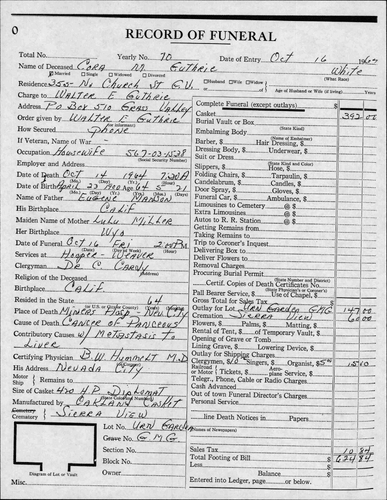 O
RECORD OF FUNERAL
Total No. Yearly No. 70 Date of Entry Oct 16 1964
Name of Deceased Cora M. Guthrie White
Married Single Widowed Divorced (What Race)
Residence 355 No Church St G.V. Husband Wife Widow
or Age of Husband or Wife (if living) Years
Charge to Walter E Guthrie
Address P O Box 510 Grass Valley
Order given by Walter E Guthrie
How Secured Phone
If Veteran, Name of War
Occupation Housewife 567-03-1528
(Social Security Number)
Employer and Address
Date of Death Oct 14 1964 7:20 A
(Mo.) (Day) (Yr.) (Hour)
Date of Birth April 23 Age 64 5 21
(Mo.) (Day) (Yr.) (Yrs.) (Mos.) (Days)
Name of Father Eugene Manson
His Birthplace Calif
Maiden Name of Mother Lulu Miller
Her Birthplace Wyo
Date of Funeral Oct 16 Fri 2:00 PM
Services at Hooper-Weaver
Clergyman Dr C Cardy
Religion of the Deceased
Birthplace Calif.
Resided in the State 64
Place of Death Miners Hosp - Nev. City
Cause of Death Cancer of Pancreous
Contributory Causes w/ Metastasis To
Liver
Certifying Physician B.W. Hummelt M.D
His Address Nevada City
Motor
Ship Remains to
Size of Casket 420 H.P. Diplomat
Manufactured by Oakland Casket
Cemetery Sierra View
Lot No. Urn Garden
Grave No. G M G
Section No.
Block No.
Owner
Diagram of Lot or Vault
Misc.
Complete Funeral (except outlays) $
Casket 392.00
Burial Vault or Box
(State Kind)
Embalming Body
(Name of Embalmer)
Barber, $ Hair Dressing, $
Dressing Body, $ Underwear, $
Suit or Dress
(State Kind and Color)
Slippers, $ Hose, $
Folding Chairs, $ Tarpaulin, $
Candelabrum, $ Candles, $
Gloves, $ Door Spray, $
Funeral Car, $ Ambulance, $
Limousines to Cemetery @ $
Extra Limousines @ $
Autos to R. R. Station @ $
Getting Remains
Taking Remains
Trip to Coroner's Inquest
Delivering Box to
Deliver Flowers
Removal Charges
Procuring Burial Permit
(State Number and District)
Certif. Copies of Death Certificates No.
(State Physician's or Coroner's)
Pall Bearer Service, $ Use of Chapel, $
Gross Total for Sales Tax $
Outlay for Lot Urn Garden GMG 147.00
Cremation Sierra View 60.00
Flowers, $ Palms, $ Matting, $
Rental of Tent, $ of Temporary Vault, $
Opening of Grave or Tomb
Lining Grave, $ Lowering Device, $
Outlay for Shipping Charges
Clergymen, $10 Singers, $ Organist, $5 15.00
Railroad or Motor Tickets, $ Aeroplane Service, $
Telegr., Phone, Cable or Radio Charges
Cash Advanced
Out of town Funeral Director's Charges
Personal Service
line Death Notices in Papers
Sales Tax 10.84
Total Footing of Bill $ 624.84
Less
Balance
Entered into Ledger, page or below.